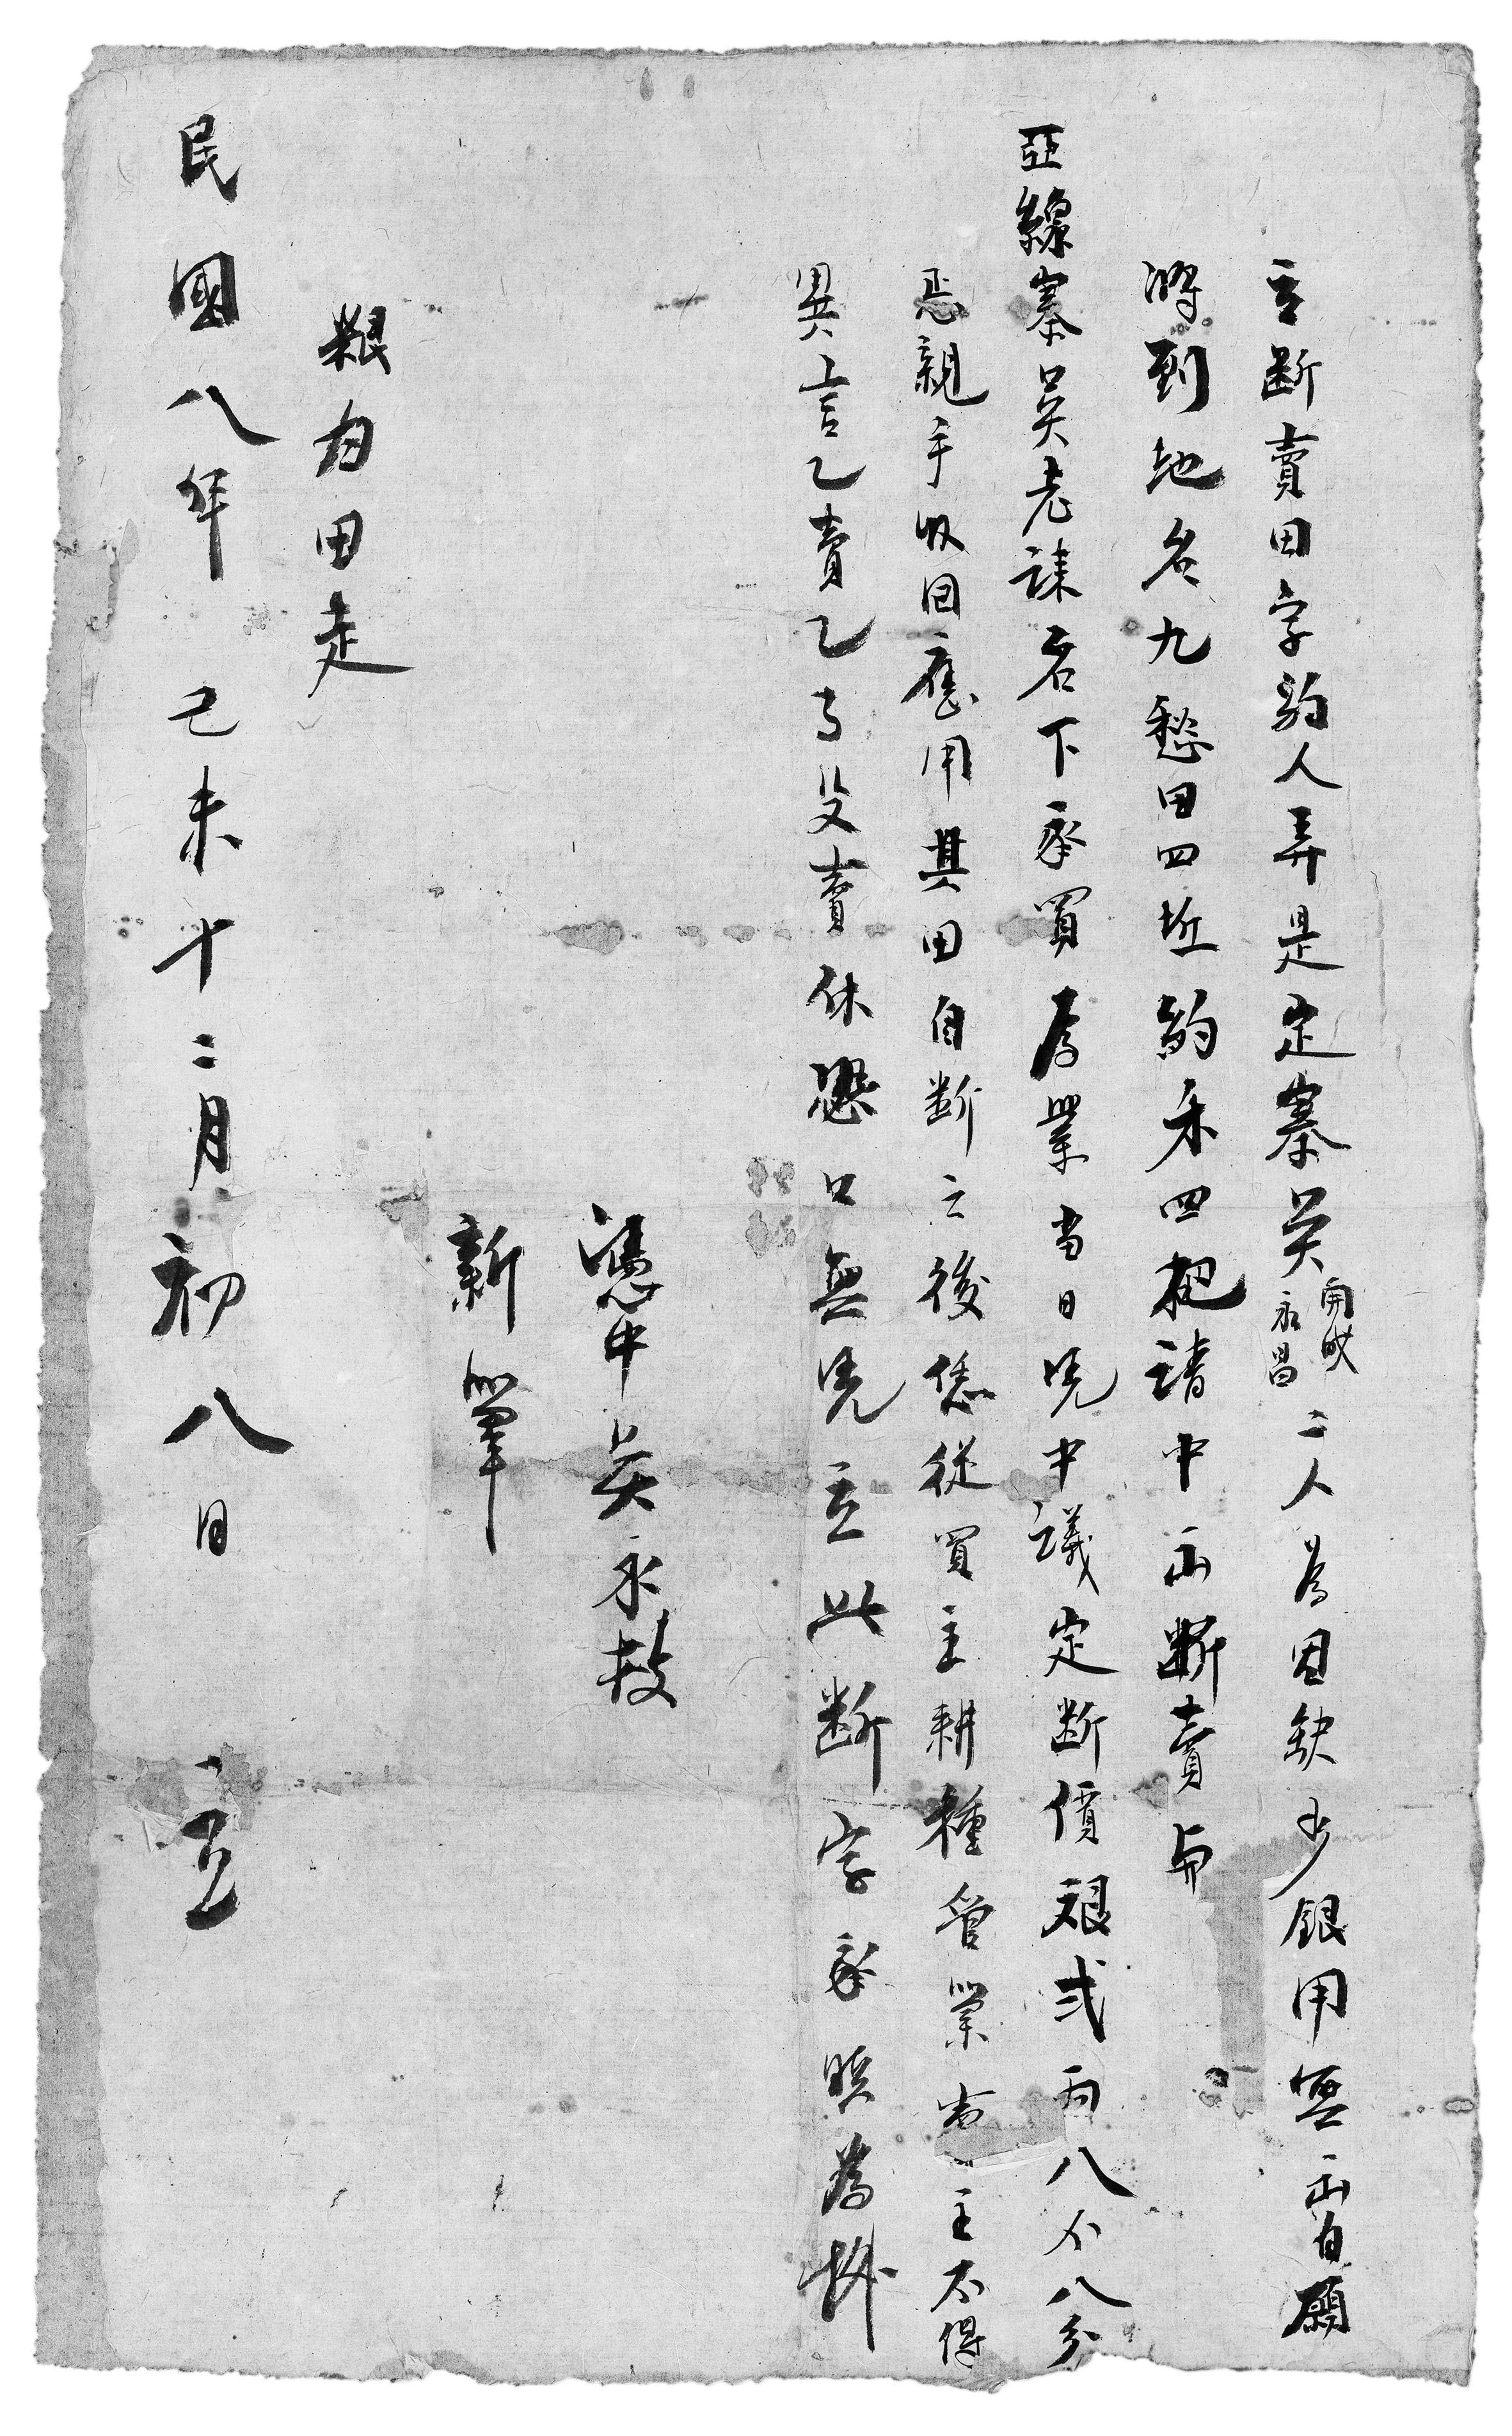 立断賣田字約人弄是定寨吴開成永昌二人為因缺少銀用無出自願
將到地名九愁田四坵約禾四把請中出断賣与
亞線寨吴老諫名下承買為業当日凭中議定断價銀弍両八分八分
悉親手收回應用其田自断之後恁從買主耕種管業賣主不得
異言乙賣乙了父賣休恐口無凭立此断字承照為據
憑中吴永拔
新筆
粮为田走
民國八年己未十二月初八日立